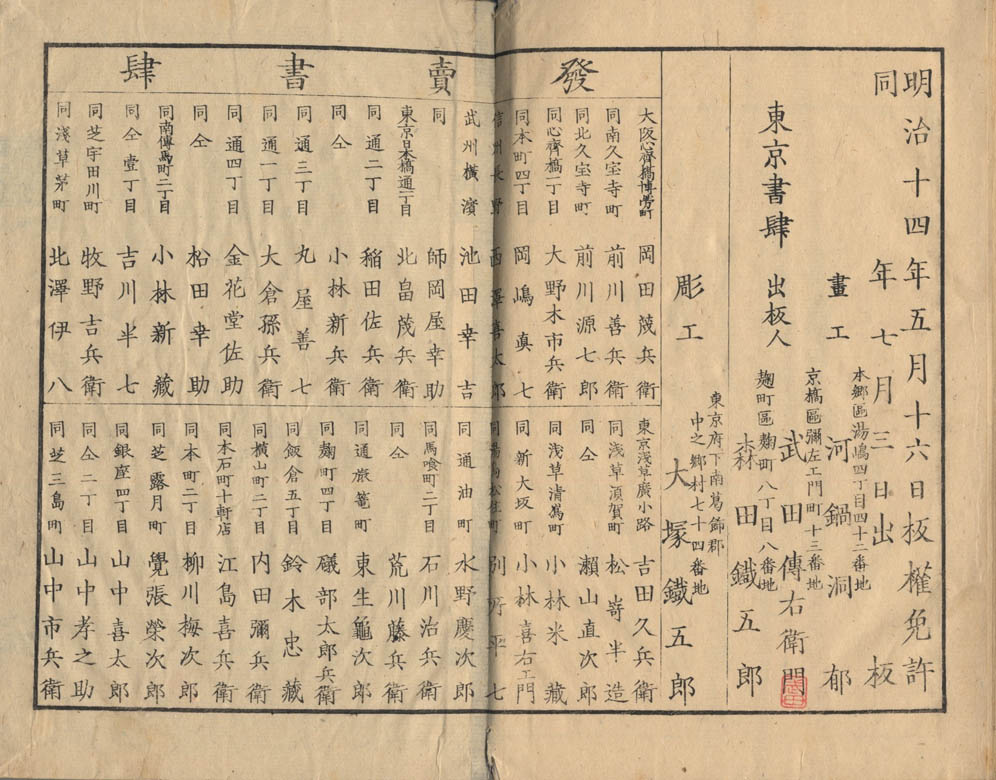 明治十四年五月十六日板權免許
同年七月三日出板
畫工
本鄉區湯嶋四丁目四十二番地
河鍋洞郁
東京書肆
出板人
京橋區彌左エ門町十三番地
武田傳右衛門
麹町區麹町八丁目八番地
森田鐵五郎
彫工
東京府下南葛飾郡
中之鄉村七十四番地
大塚鐵五郎
發賣書肆
大阪心齊橋博勞町 岡田茂兵衛
同南久宝寺町 前川善兵衛
同北久宝寺町 前川源七郎
同心齊橋一丁目 大野木市兵衛
同本町四丁目 岡嶋真七
信州長野 西澤喜太郎
武州橫濱 池田幸吉
同 師岡屋幸助
東京日本橋通一丁目 北畠茂兵衛
同通二丁目 稲田佐兵衛
同仝 小林新兵衛
同通三丁目 丸屋善七
同通一丁目 大倉孫兵衛
同通四丁目 金花堂佐助
同仝 松田幸助
同南傳馬町二丁目 小林新藏
同仝壹丁目 吉川半七
同芝宇田川町 牧野吉兵衛
同淺草茅町 北澤伊八
東京淺草廣小路 吉田久兵衛
同淺草須賀町 松嵜半造
同仝 瀨山直次郎
同淺草清嶌町 小林米藏
同新大坂町 小林喜右エ門
同湯島松住町 別所平七
同通油町 水野慶次郎
同馬喰町二丁目 石川治兵衛
同仝 荒川藤兵衛
同通旅篭町 東生龜次郎
同麹町四丁目 礒部太郎兵衛
同飯倉五丁目 鈴木忠藏
同橫山町二丁目 内田彌兵衛
同本石町十軒店 江島喜兵衛
同本町二丁目 柳川梅次郎
同芝露月町 覺張榮次郎
同銀座四丁目 山中喜太郎
同仝二丁目 山中孝之助
同芝三島町 山中市兵衛